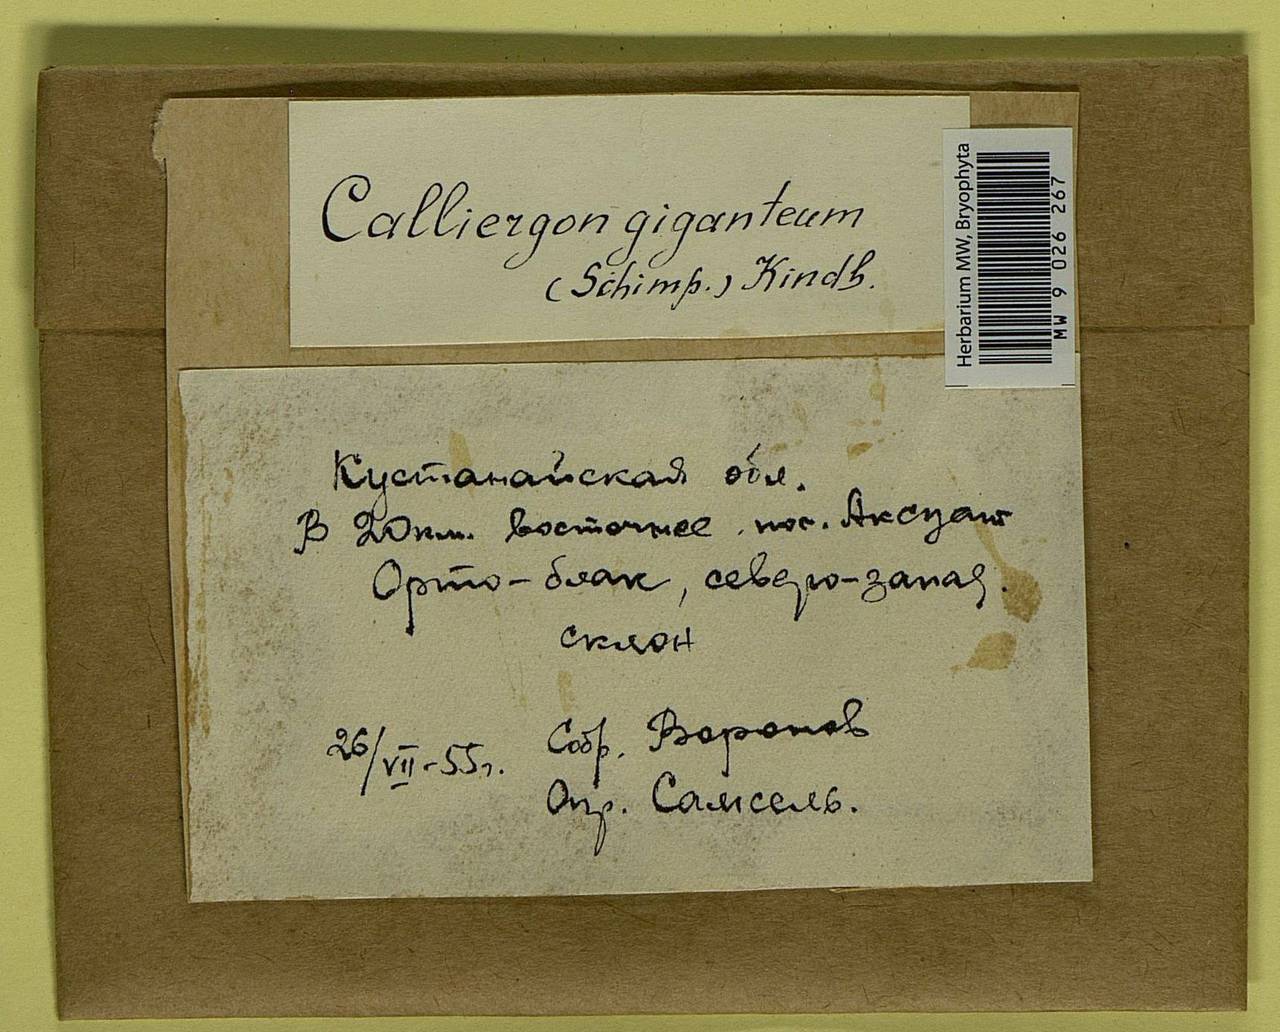 Calliergon giganteum
(Schimp.) Kindb.
Herbarium MW, Bryophyta
MW 9 026 267
Кустанайская обл.
В 20 км. восточнее пос. Аксуат
Орто-блак, северо-запад.
склон
26/VII-55г. Собр. Воронов
Опр. Самсель.